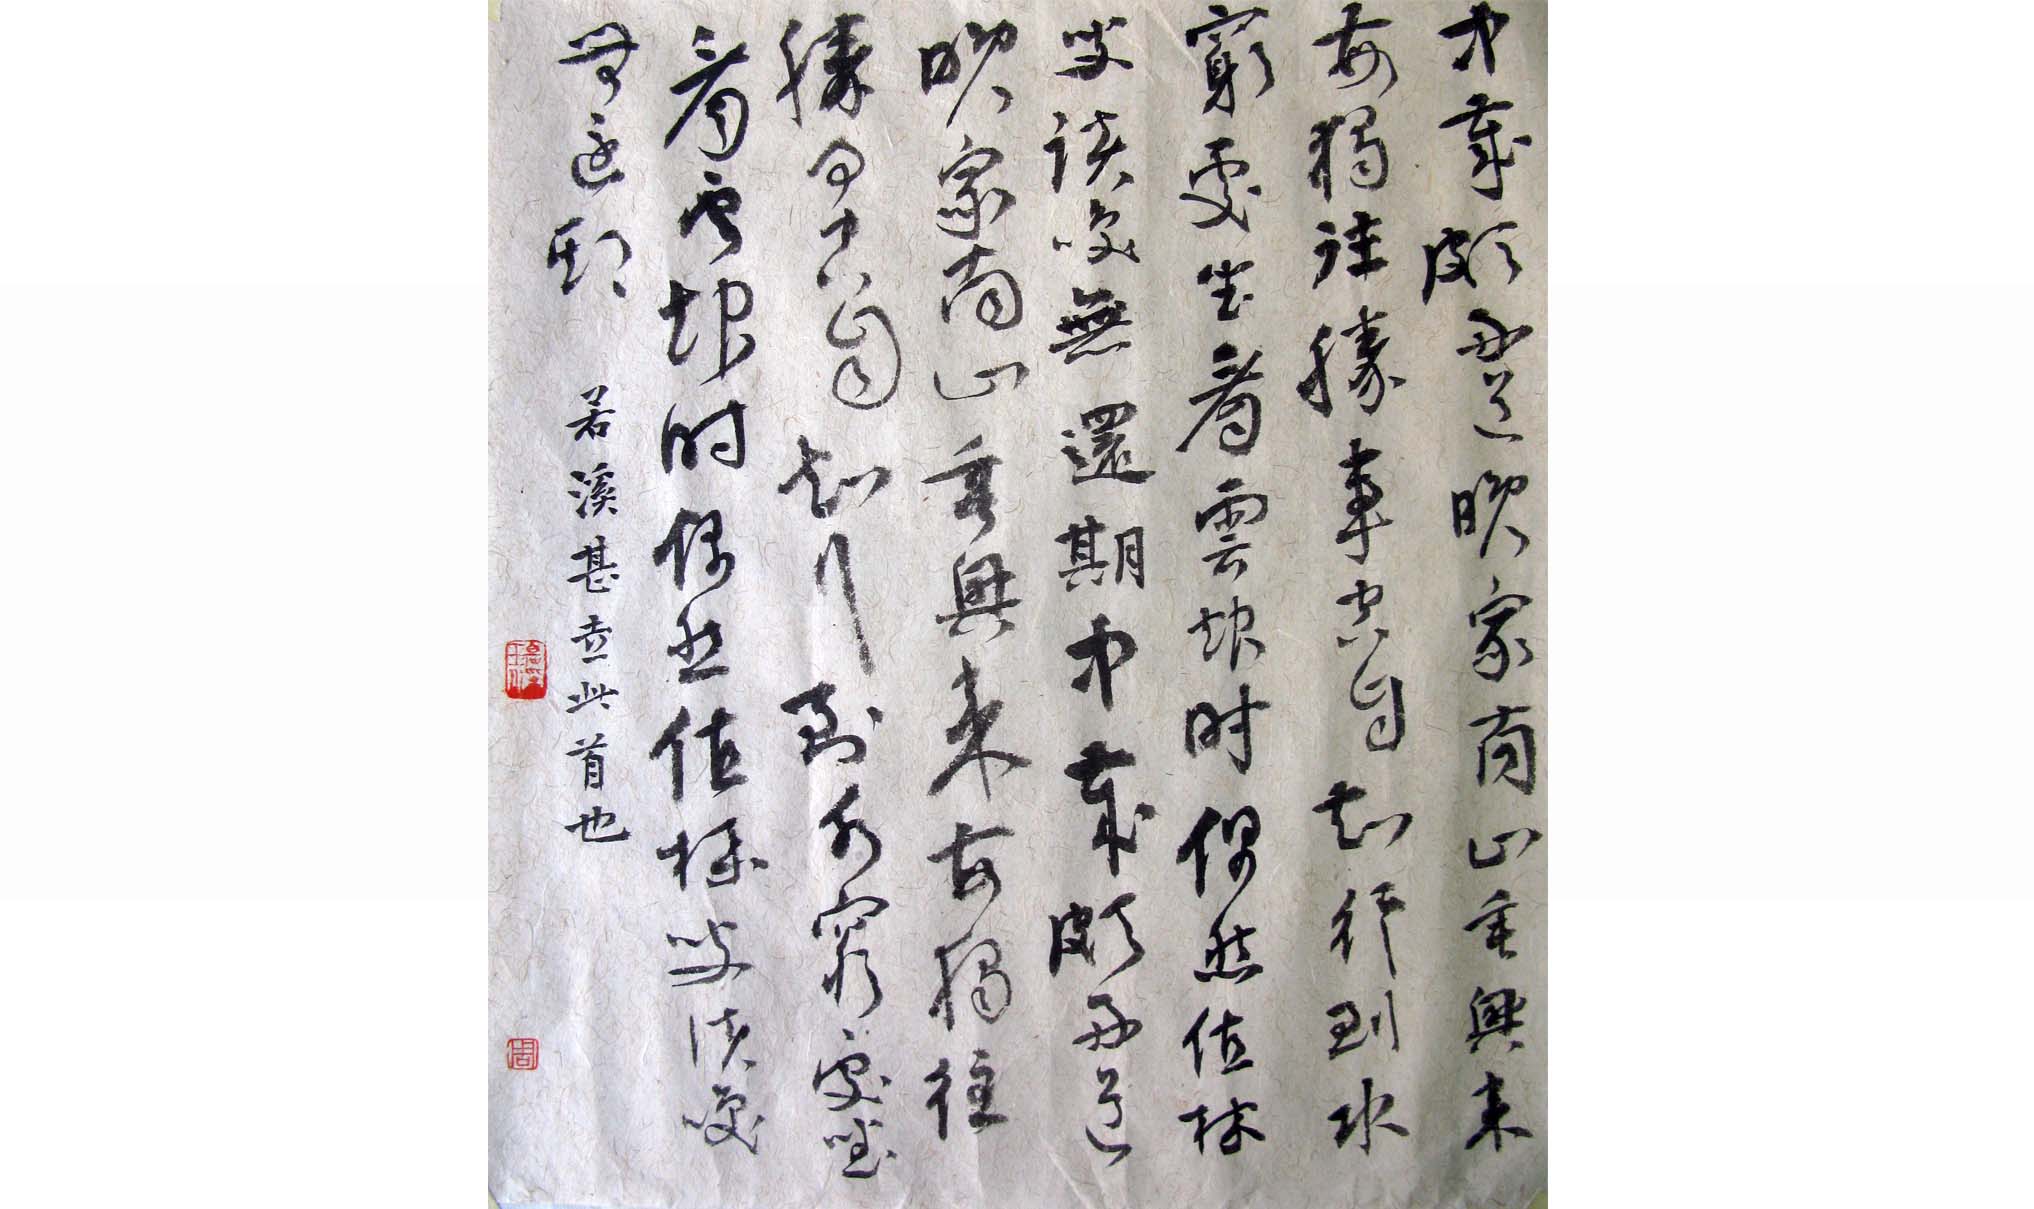 中歲頗好道晚家南山垂興來
每獨往勝事空自知行到水
窮處坐看雲起时偶然值林
叟談笑無還期中歲頗好道
晚家南山垂興來每獨往
勝事空自知行到水窮處坐
看雲起时偶然值林叟談笑
無還期
若溪甚喜此首也
周